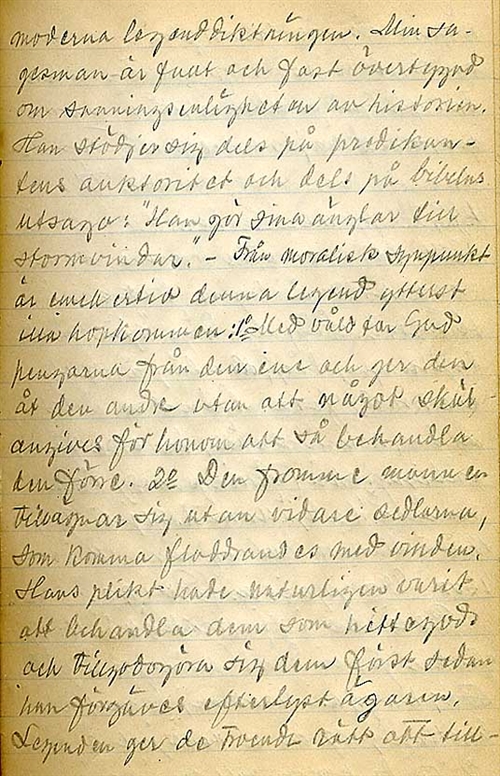 moderna legenddiktningen. Min sa-
gesman är fullt och fast övertygad
om sanningsenligheten av historien.
Han stödjer sig dels på predikan-
tens auktoritet och dels på bibelns
utsago: "Han gör sina änglar till
stormvindar." - Från moralisk synpunkt
är emellertid denna legend ytterst
illa hopkommen: 1º Med våld tar Gud
pengarna från den ene och ger dem
åt den andre utan att något skäl
angives för honom att så behandla
den förre. 2º Den fromme mannen
tillägnar sig utan vidare sedlarna,
som komma fladdrandes med vinden.
Hans plikt hade naturligen varit
att behandla dem som hittegods
och tillgodogöra sig dem först sedan
han förgäves efterlyst ägaren.
Legenden ger de troende rätt att till-